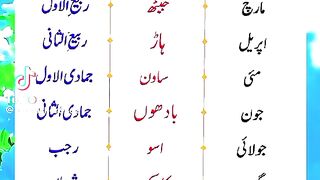 مارچ جیٹھ ربیع الاول
اپریل ہاڑ ربیع الثانی
مئی ساون جمادی الاول
جون بادھوں جمادی الثانی
جولائی اسو رجب